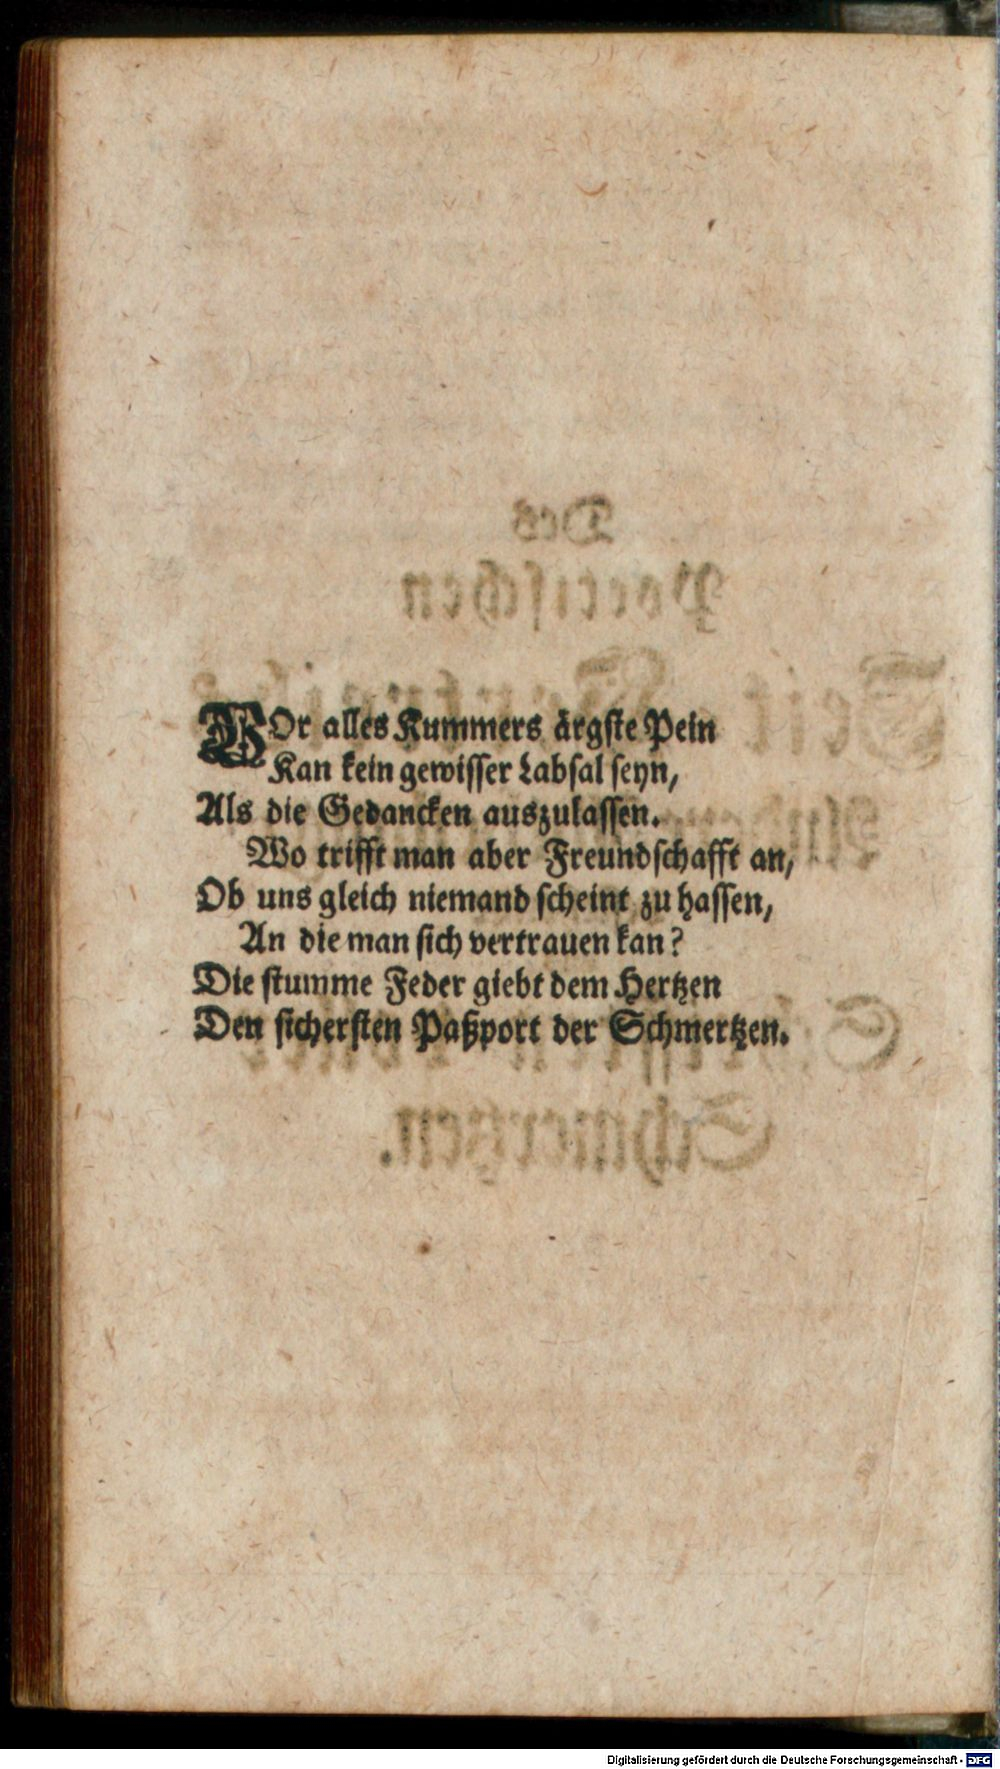 VOr alles Kummers ärgste Pein
Kan kein gewisser Labsal seyn,
Als die Gedancken auszulassen.
Wo trifft man aber Freundschafft an,
Ob uns gleich niemand scheint zu hassen,
An die man sich vertrauen kan?
Die stumme Feder giebt dem Hertzen
Den sichersten Paßport der Schmertzen.
Digitalisierung gefördert durch die Deutsche Forschungsgemeinschaft - DFG